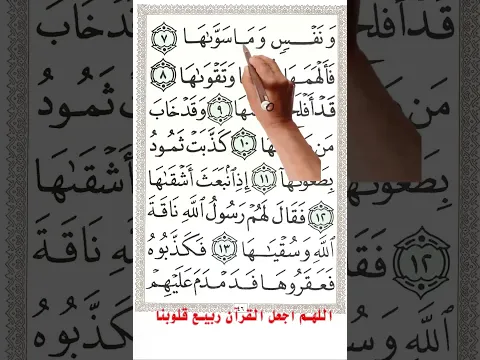 وَنَفْسٍ وَمَا سَوَّىٰهَا ٧
فَأَلْهَمَهَا وَتَقْوَىٰهَا ٨
قَدْ ٩ وَقَدْ خَابَ
مَن ١٠ كَذَّبَتْ ثَمُودُ
بِطَغْوَىٰهَا ١١ إِذِ ٱنۢبَعَثَ أَشْقَىٰهَا
١٢ فَقَالَ لَهُمْ رَسُولُ ٱللَّهِ نَاقَةَ
ٱللَّهِ وَسُقْيَٰهَا ١٣ فَكَذَّبُوهُ
فَعَقَرُوهَا فَدَمْدَمَ عَلَيْهِمْ
اللهم اجعل القرآن ربيع قلوبنا